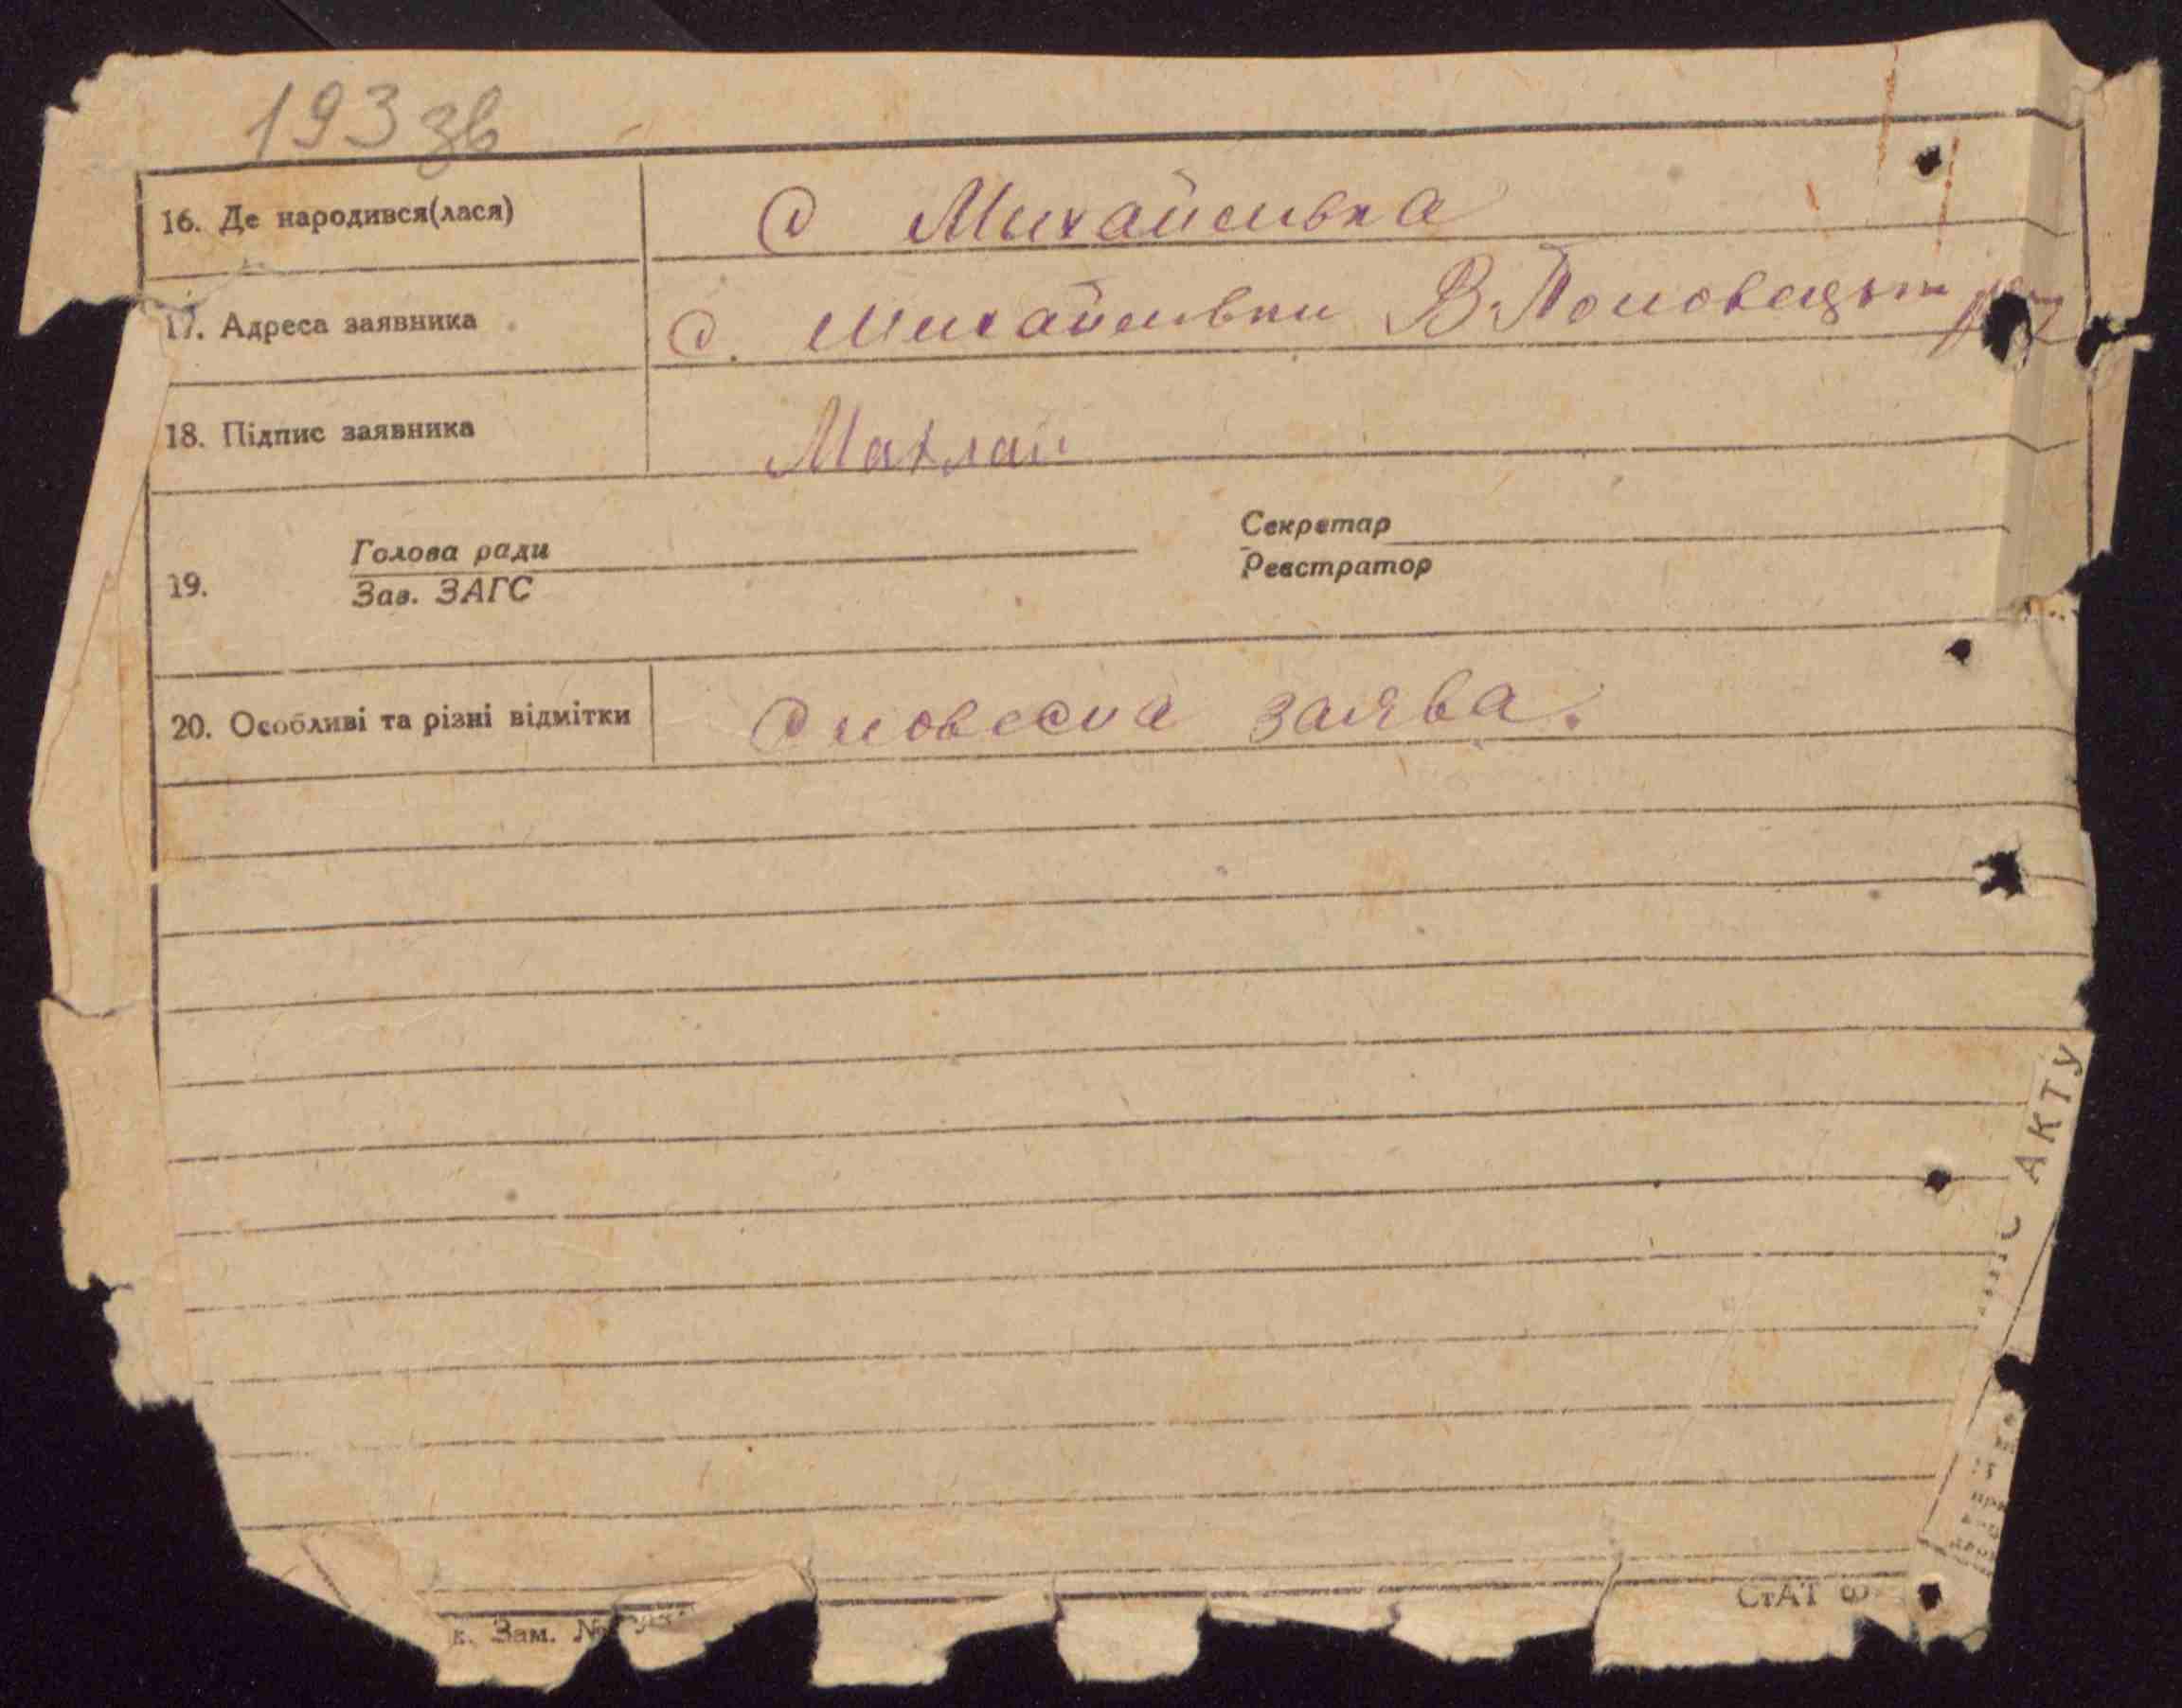 193 зв
16. Де народився(лася) с Михайлівка
17. Адреса заявника с. Михайлівки В. Половецьк
18. Підпис заявника Махлай
Секретар
Голова ради
Реєстратор
19.
Зав. ЗАГС
20. Особливі та різні відмітки Словесна заява.
АКТУ
к. Зам. №
СтАТ Ф